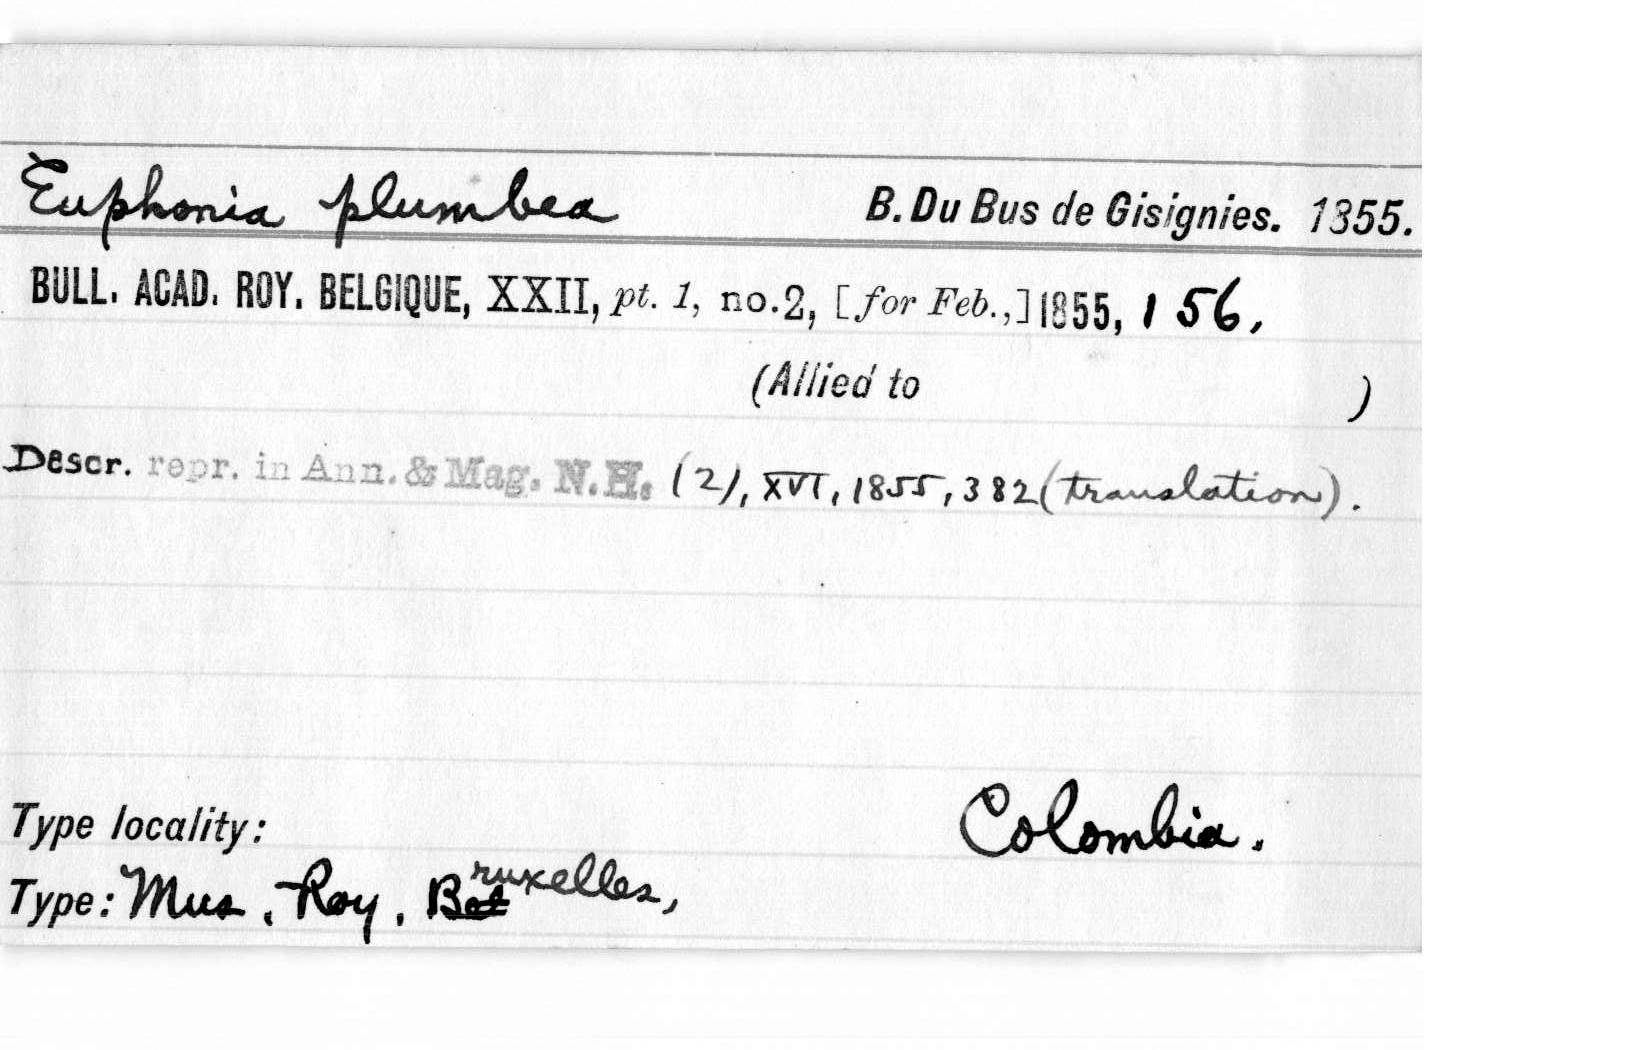 Euphonia plumbea B. Du Bus de Gisignies. 1855.
BULL. ACAD. ROY. BELGIQUE, XXII, pt. 1, no.2, [for Feb.,] 1855, 156,
(Allied to )
Descr. repr. in Ann. & Mag. N.H. (2), XVI, 1855, 382 (translation).
Type locality: Colombia.
Type: Mus. Roy. Bruxelles,